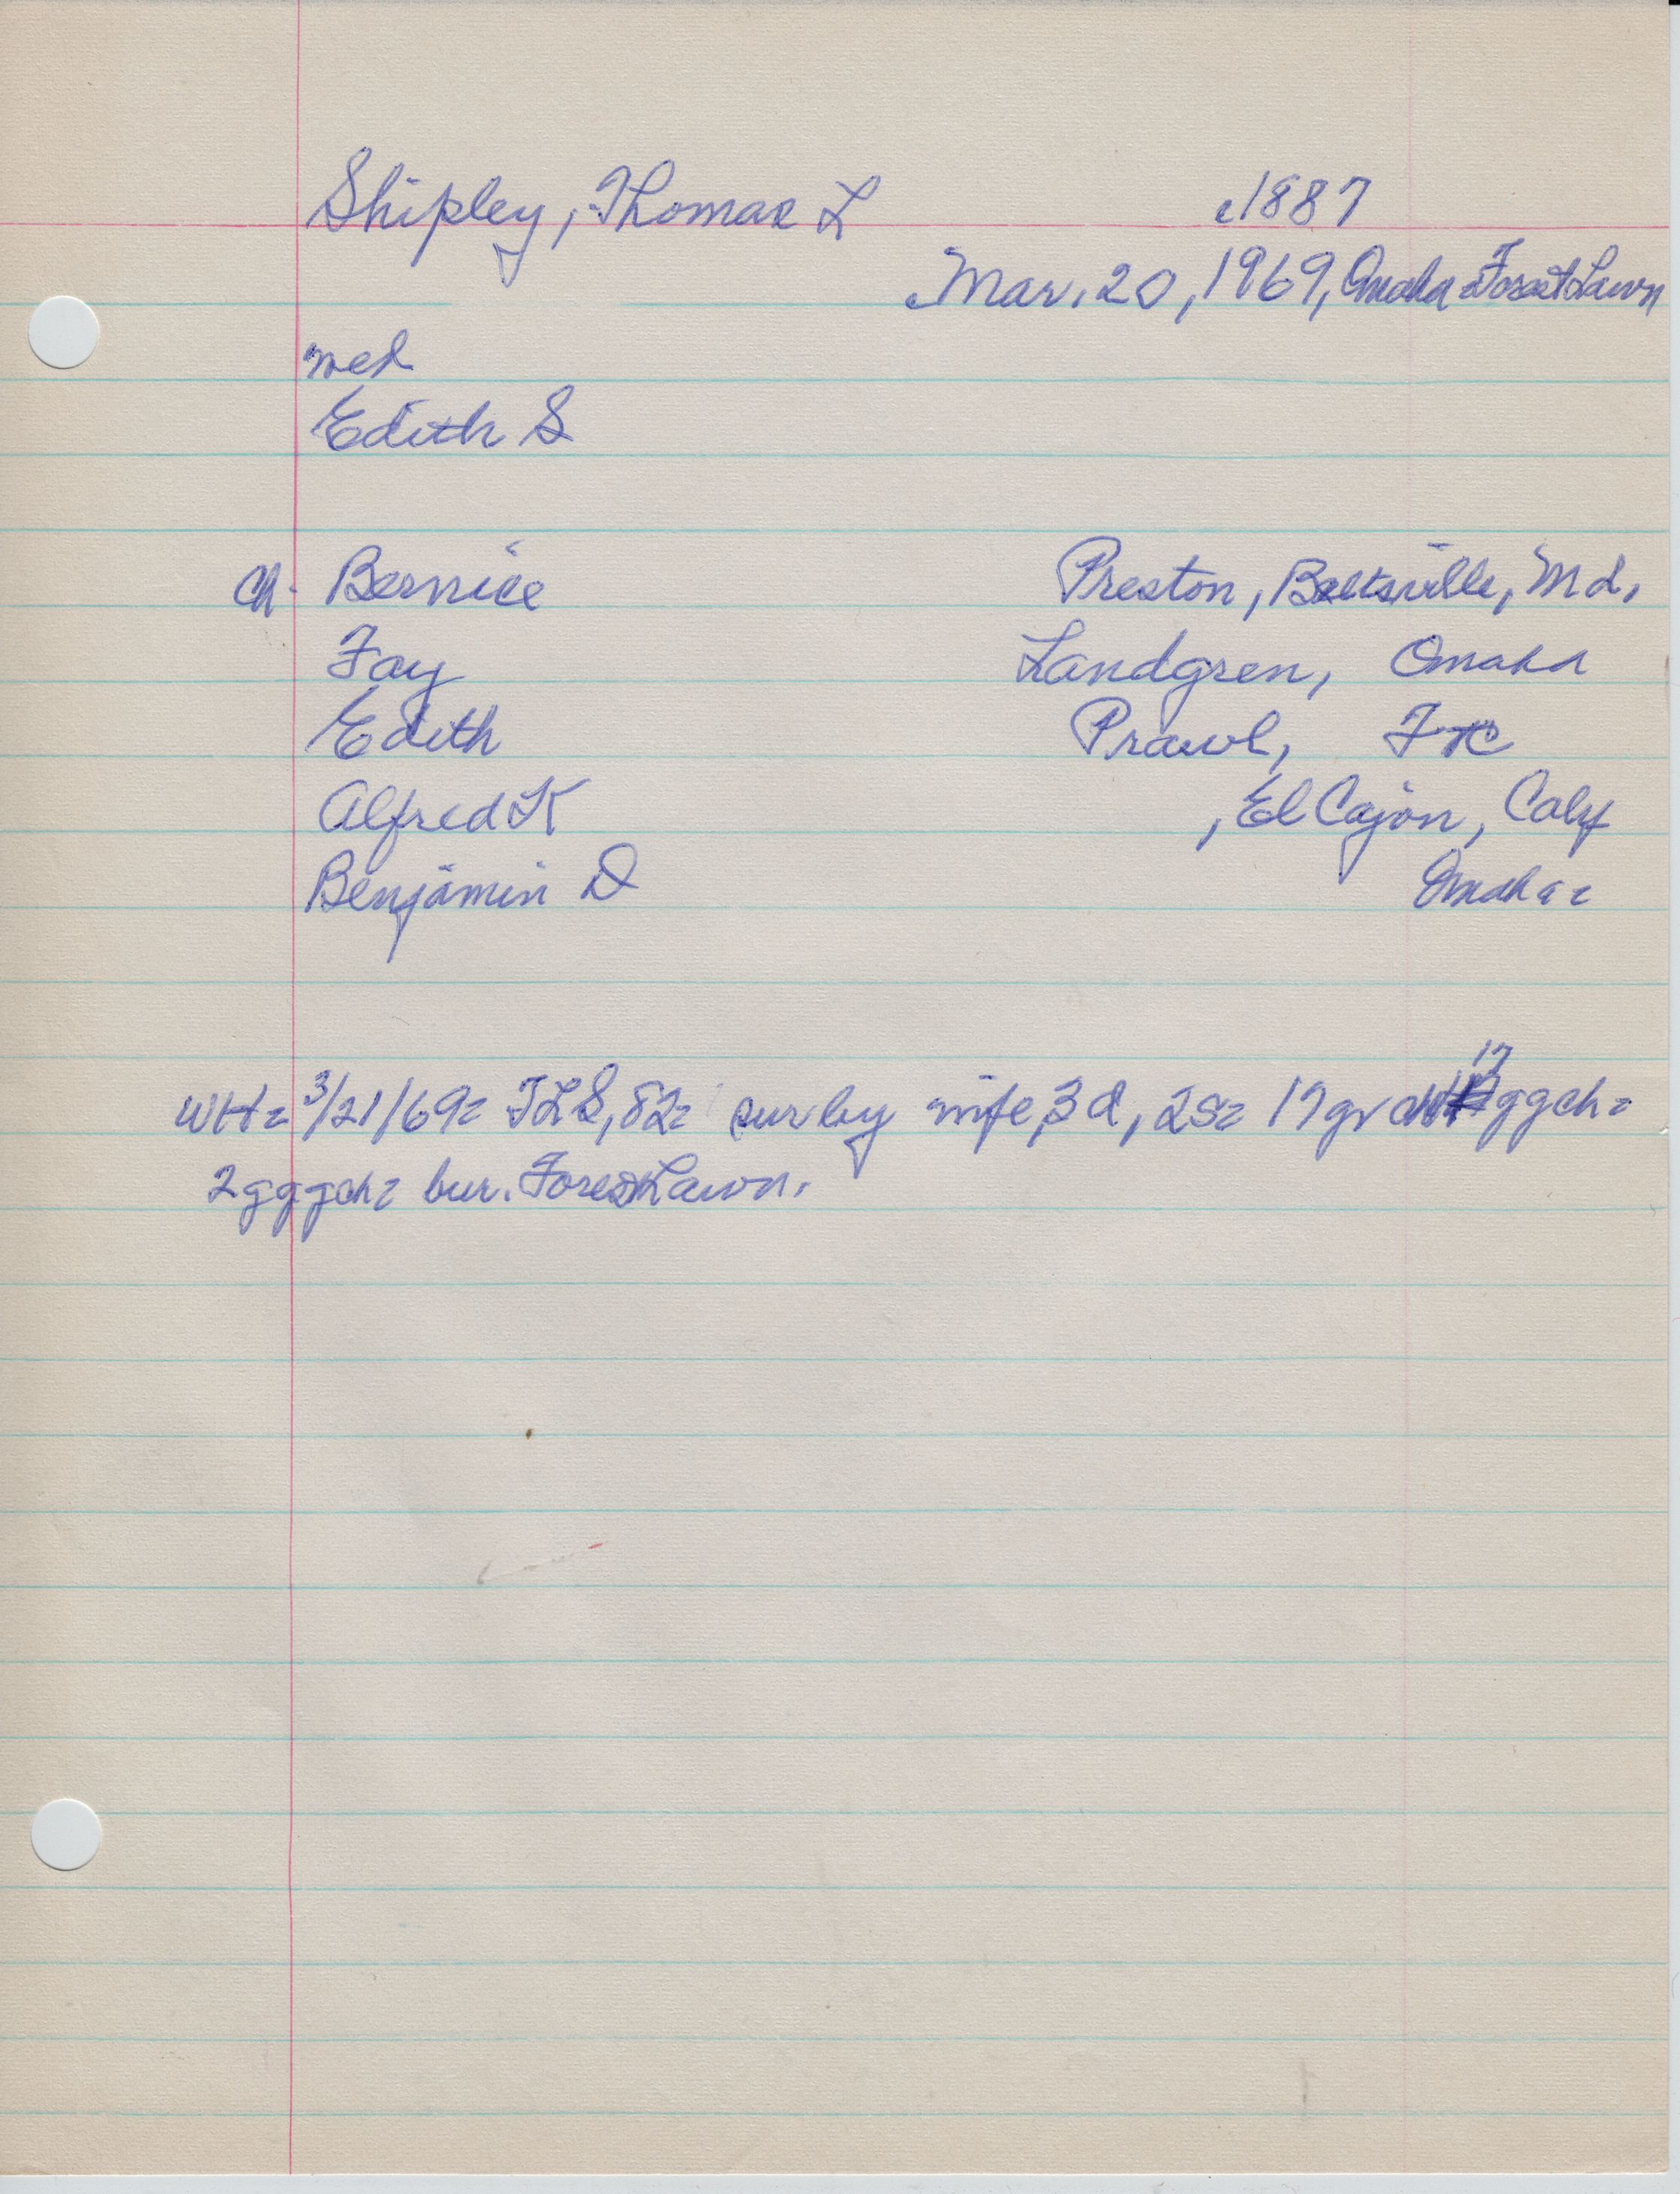 Shipley, Thomas L c1887
Mar. 20, 1969, Omaha = Forest Lawn
med
Edith S
ch. Bernice Preston, Beltsville, Md.
Fay Landgren, Omaha
Edith Prawl, FtC
Alfred K , El Cajon, Calif
Benjamin D Omaha =
WH = 3/21/69 = TLS, 82 = sur by wife, 3 d, 2 s = 17 gr ch 17 ggch =
2 gggch = bur. Forest Lawn.